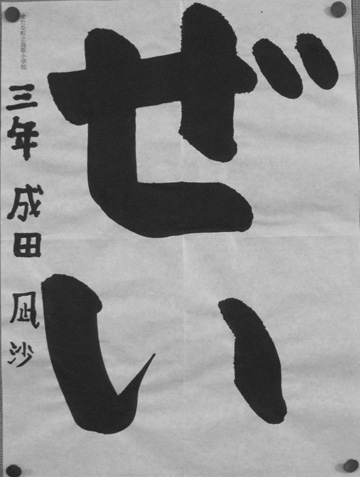 ぜい
三年 成田 凪沙